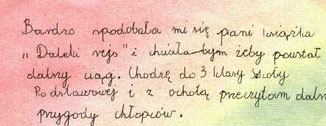 Bardzo spodobała mi się pani książka
„Daleki rejs" i chciała bym żeby powstał
dalszy ciąg. Chodzę do 3 klasy Szkoły
Podstawowej i z ochotą przeczytam dalsze
przygody chłopców.